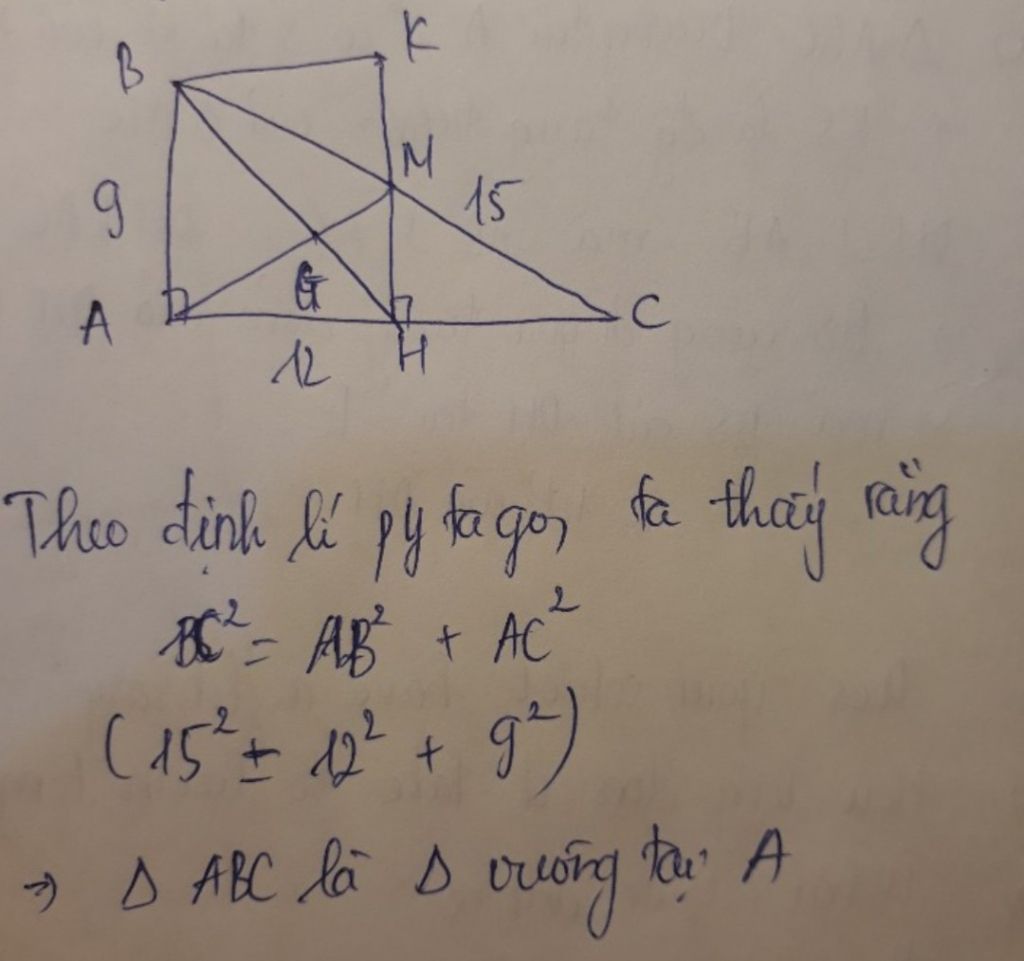 B
K
M
9
15
A
G
H
C
12
Theo định lí py ta go, ta thấy rằng
BC² = AB² + AC²
(15² = 12² + 9²)
⇒ Δ ABC là Δ vuông tại A